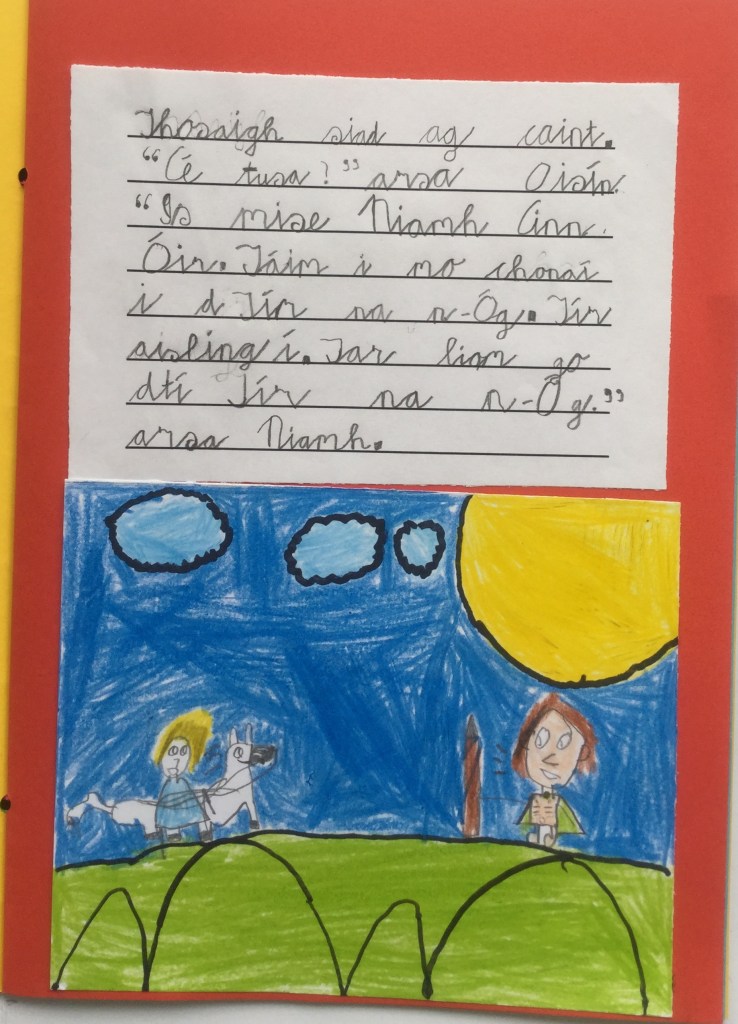 Thosaigh siad ag caint.
"Cé tusa?" arsa Oisín.
"Is mise Niamh Cinn
Óir. Táim i mo chonaí
i dTír na n-Óg. Tír
aislingí. Tar liom go
dtí Tír na n-Óg."
arsa Niamh.